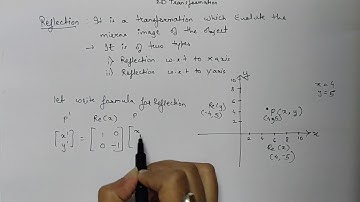 2D Transformation
Reflection : It is a transformation which Evaluate the
mirror image of the object
→ It is of two types
i) Reflection w.r.t to x axis
ii) Reflection w.r.t to Y axis
let write formula for Reflection
P' Re(x) P
[x' y'] = [1 0 0 -1] [x
y
x = 4
y = 5
10
8
6
4
2
Re(y)
(-4,5)
P(x,y)
(4,5)
2 4 6 8 10 x
Re(x)
(4,-5)